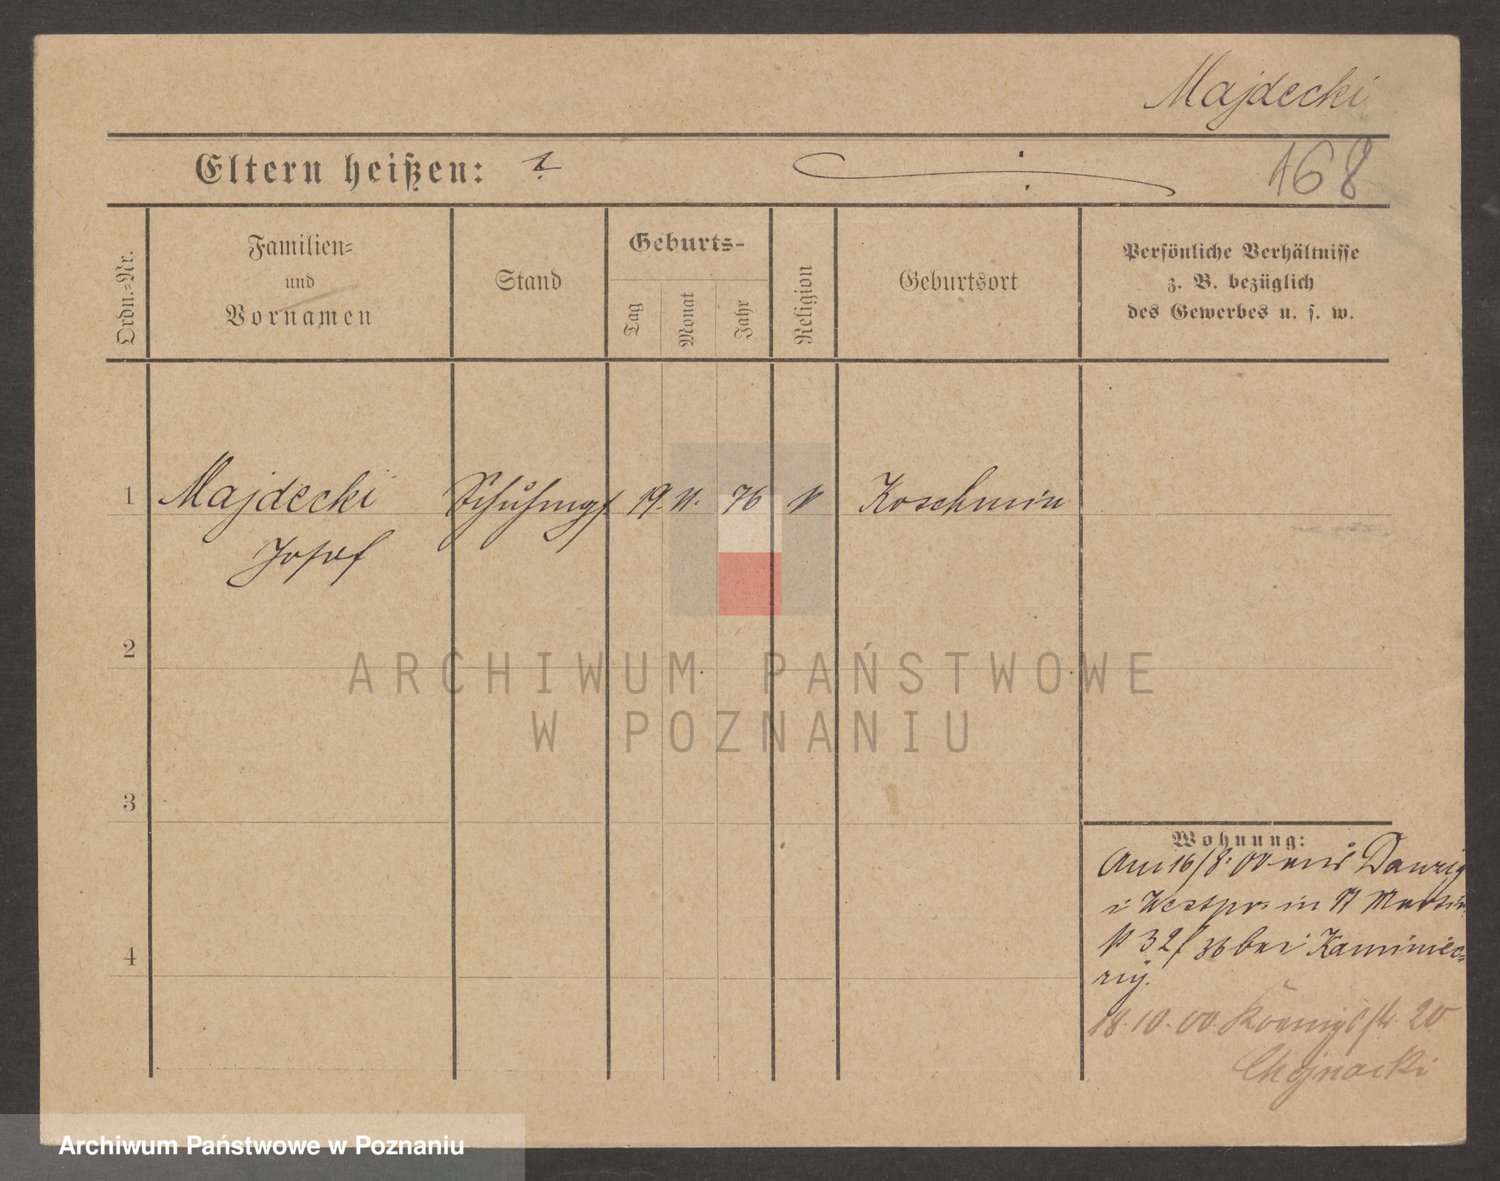 Majdecki
Eltern heißen: ?
168
Ordn.-Nr.
Familien-
und
Vornamen
Stand
Geburts-
Tag
Monat
Jahr
Religion
Geburtsort
Persönliche Verhältnisse
z. B. bezüglich
des Gewerbes u. s. w.
1 Majdecki 19. 11. 76 Koschmin
Josef
2
ARCHIWUM PAŃSTWOWE
W POZNANIU
3
Wohnung:
Am 16/8. 00 aus Danzig
i Westpr. in St Martin
32 bei Kaminiec-
4
18.10.00. Königstr. 20
Chojnacki
Archiwum Państwowe w Poznaniu